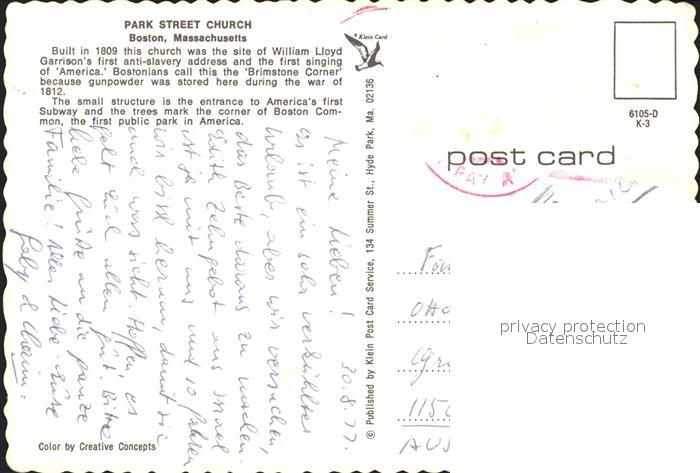 PARK STREET CHURCH
Boston, Massachusetts
Built in 1809 this church was the site of William Lloyd
Garrison's first anti-slavery address and the first singing
of 'America.' Bostonians call this the 'Brimstone Corner'
because gunpowder was stored here during the war of
1812.
The small structure is the entrance to America's first
Subway and the trees mark the corner of Boston Com-
mon, the first public park in America.
Klein Card
6105-D
K-3
post card
PAY
© Published by Klein Post Card Service, 134 Summer St., Hyde Park, Ma. 02136
30.8.77.
Meine Lieben!
es ist ein sehr verkühltes
Urlaub, aber wir versuchen,
das Beste daraus zu machen.
Edith Zehngebot aus Israel
ist mit uns und so fahren
wir bissl herum, damit sie
auch was sieht. Hoffen, es
geht Euch allen gut. Bitte
liebe Grüße an die ganze
Familie! Alles Liebe
Gaby &
115
AUS
privacy protection
Datenschutz
Color by Creative Concepts